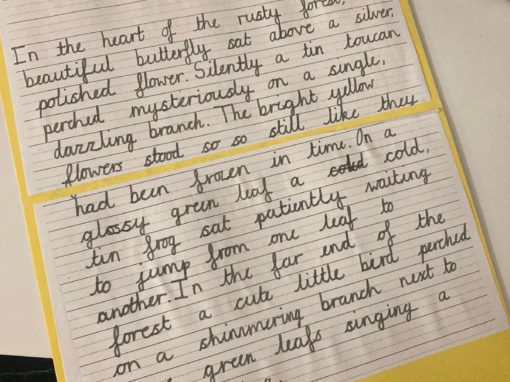 In the heart of the rusty forest,
beautiful butterfly sat above a silver,
polished flower. Silently a tin toucan
perched mysteriously on a single,
dazzling branch. The bright yellow
flowers stood so so still like they
had been frozen in time. On a
glossy green leaf a cold cold,
tin frog sat patiently waiting
to jump from one leaf to
another. In the far end of the
forest a cute little bird perched
on a shinmmering branch next to
green leafs singing a